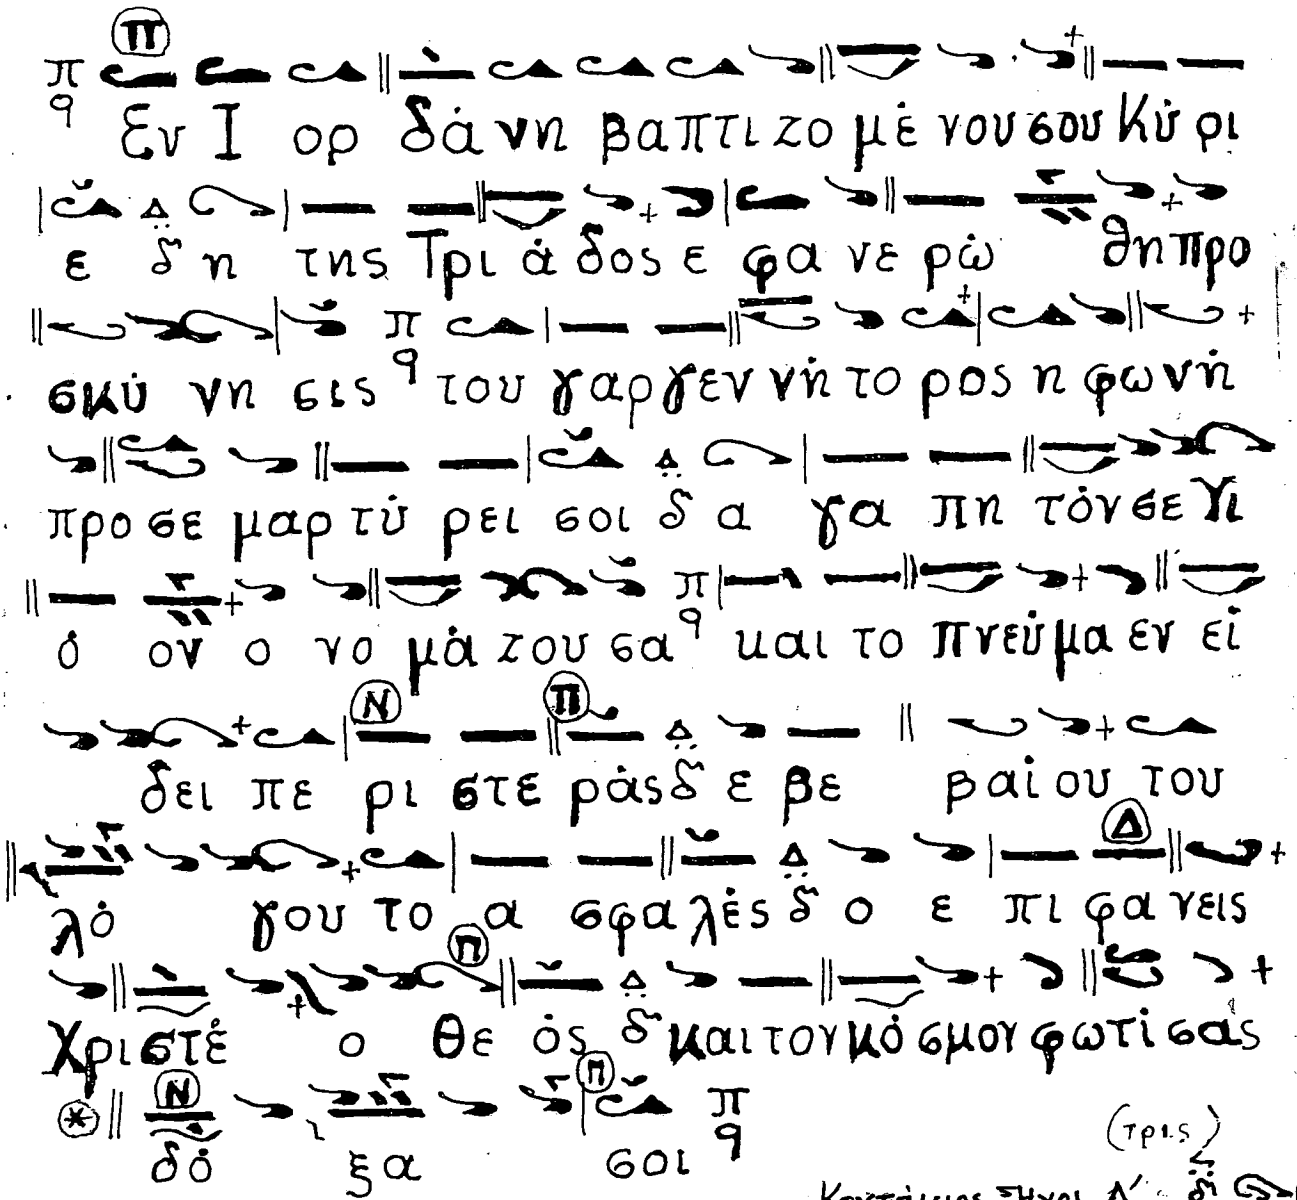 Εν Ι ορ δά νη βα πτι ζο μέ νου σου Κύ ρι
ε δ η της Τρι ά δος ε φα νε ρώ θη προ
σκύ νη σις του γαρ γεν νή το ρος η φω νή
προ σε μαρ τύ ρει σοι δ α γα πη τόν σε Υι
ό ον ο νο μά ζου σα και το πνεύ μα εν εί
δει πε ρι στε ράς δ ε βε βαί ου του
λό γου το α σφα λές δ ο ε πι φα νεις
Χρι στέ ο θε ός δ και τον κό σμον φω τί σας
δό ξα σοι
(τρις)